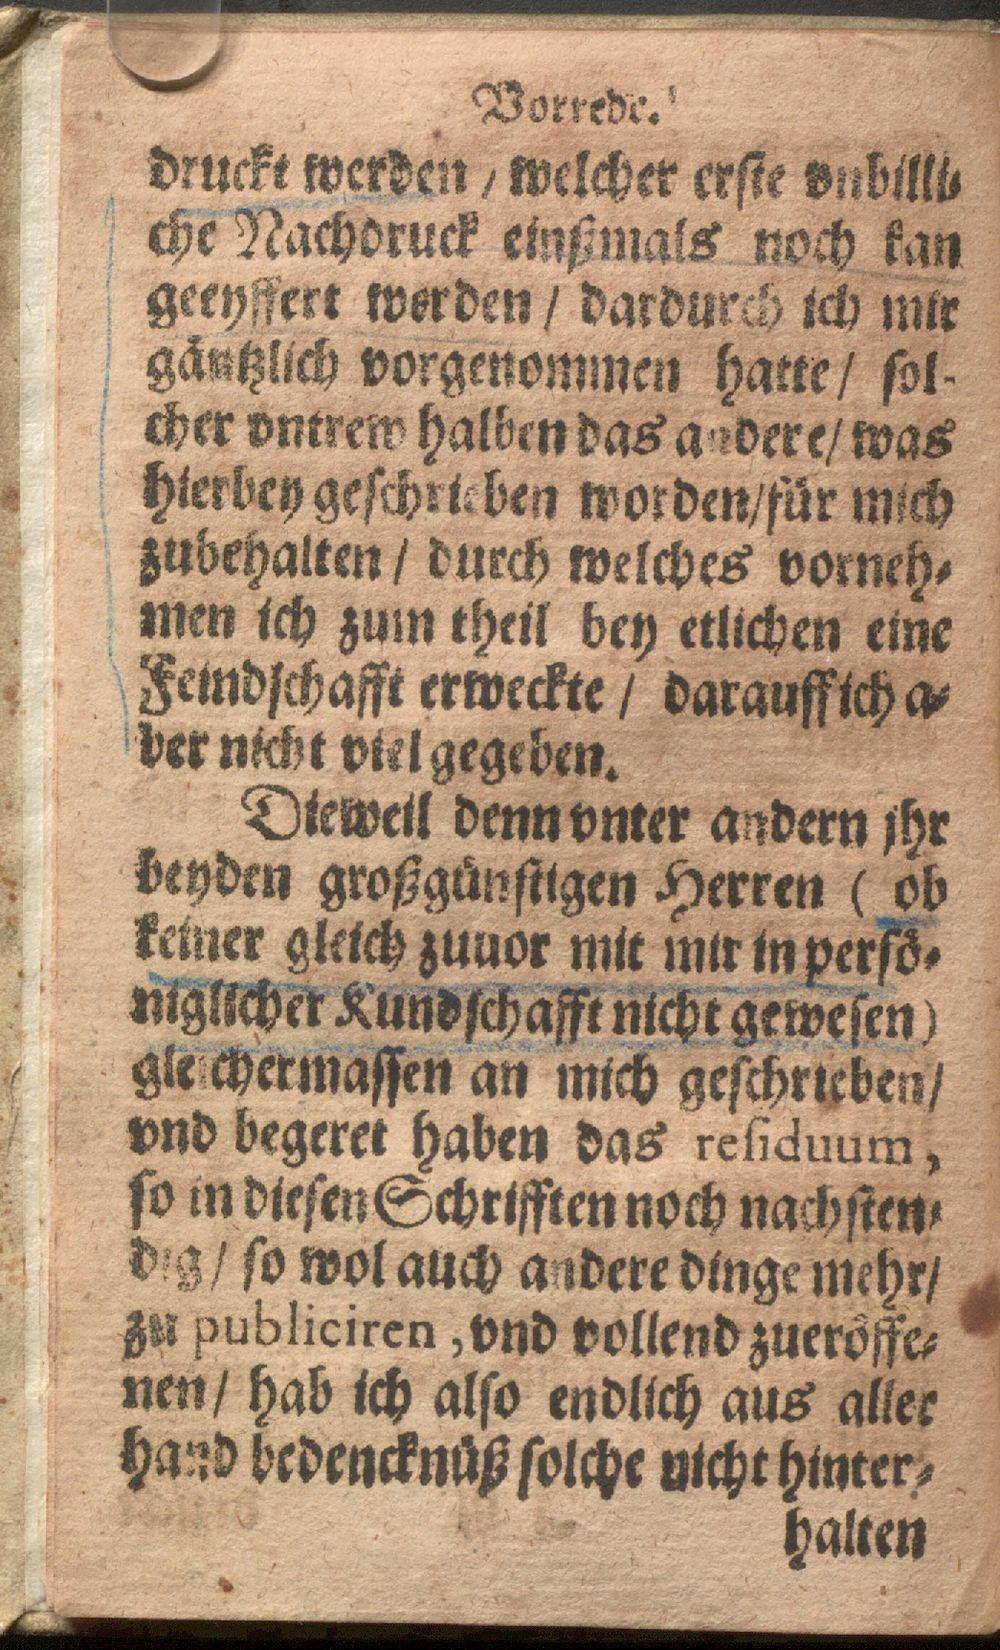 Vorrede.
druckt werden / welcher erste vnbilli-
che Nachdruck einßmals noch kan
geeyffert werden / dardurch ich mir
gäntzlich vorgenommen hatte / sol-
cher vntrew halben das andere / was
hierbey geschrieben worden / für mich
zubehalten / durch welches vorneh-
men ich zum theil bey etlichen eine
Feindschafft erweckte / darauff ich a-
ber nicht viel gegeben.
Dieweil denn vnter andern jhr
beyden großgünstigen Herren ( ob
keiner gleich zuuor mit mir in persö-
niglicher Kundschafft nicht gewesen )
gleichermassen an mich geschrieben /
vnd begeret haben das residuum,
so in diesen Schrifften noch nachsten-
dig / so wol auch andere dinge mehr /
zu publiciren, vnd vollend zueröffe-
nen / hab ich also endlich aus aller
hand bedencknüß solche nicht hinter-
halten